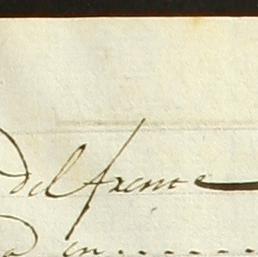 del frente
en . . . . . . .